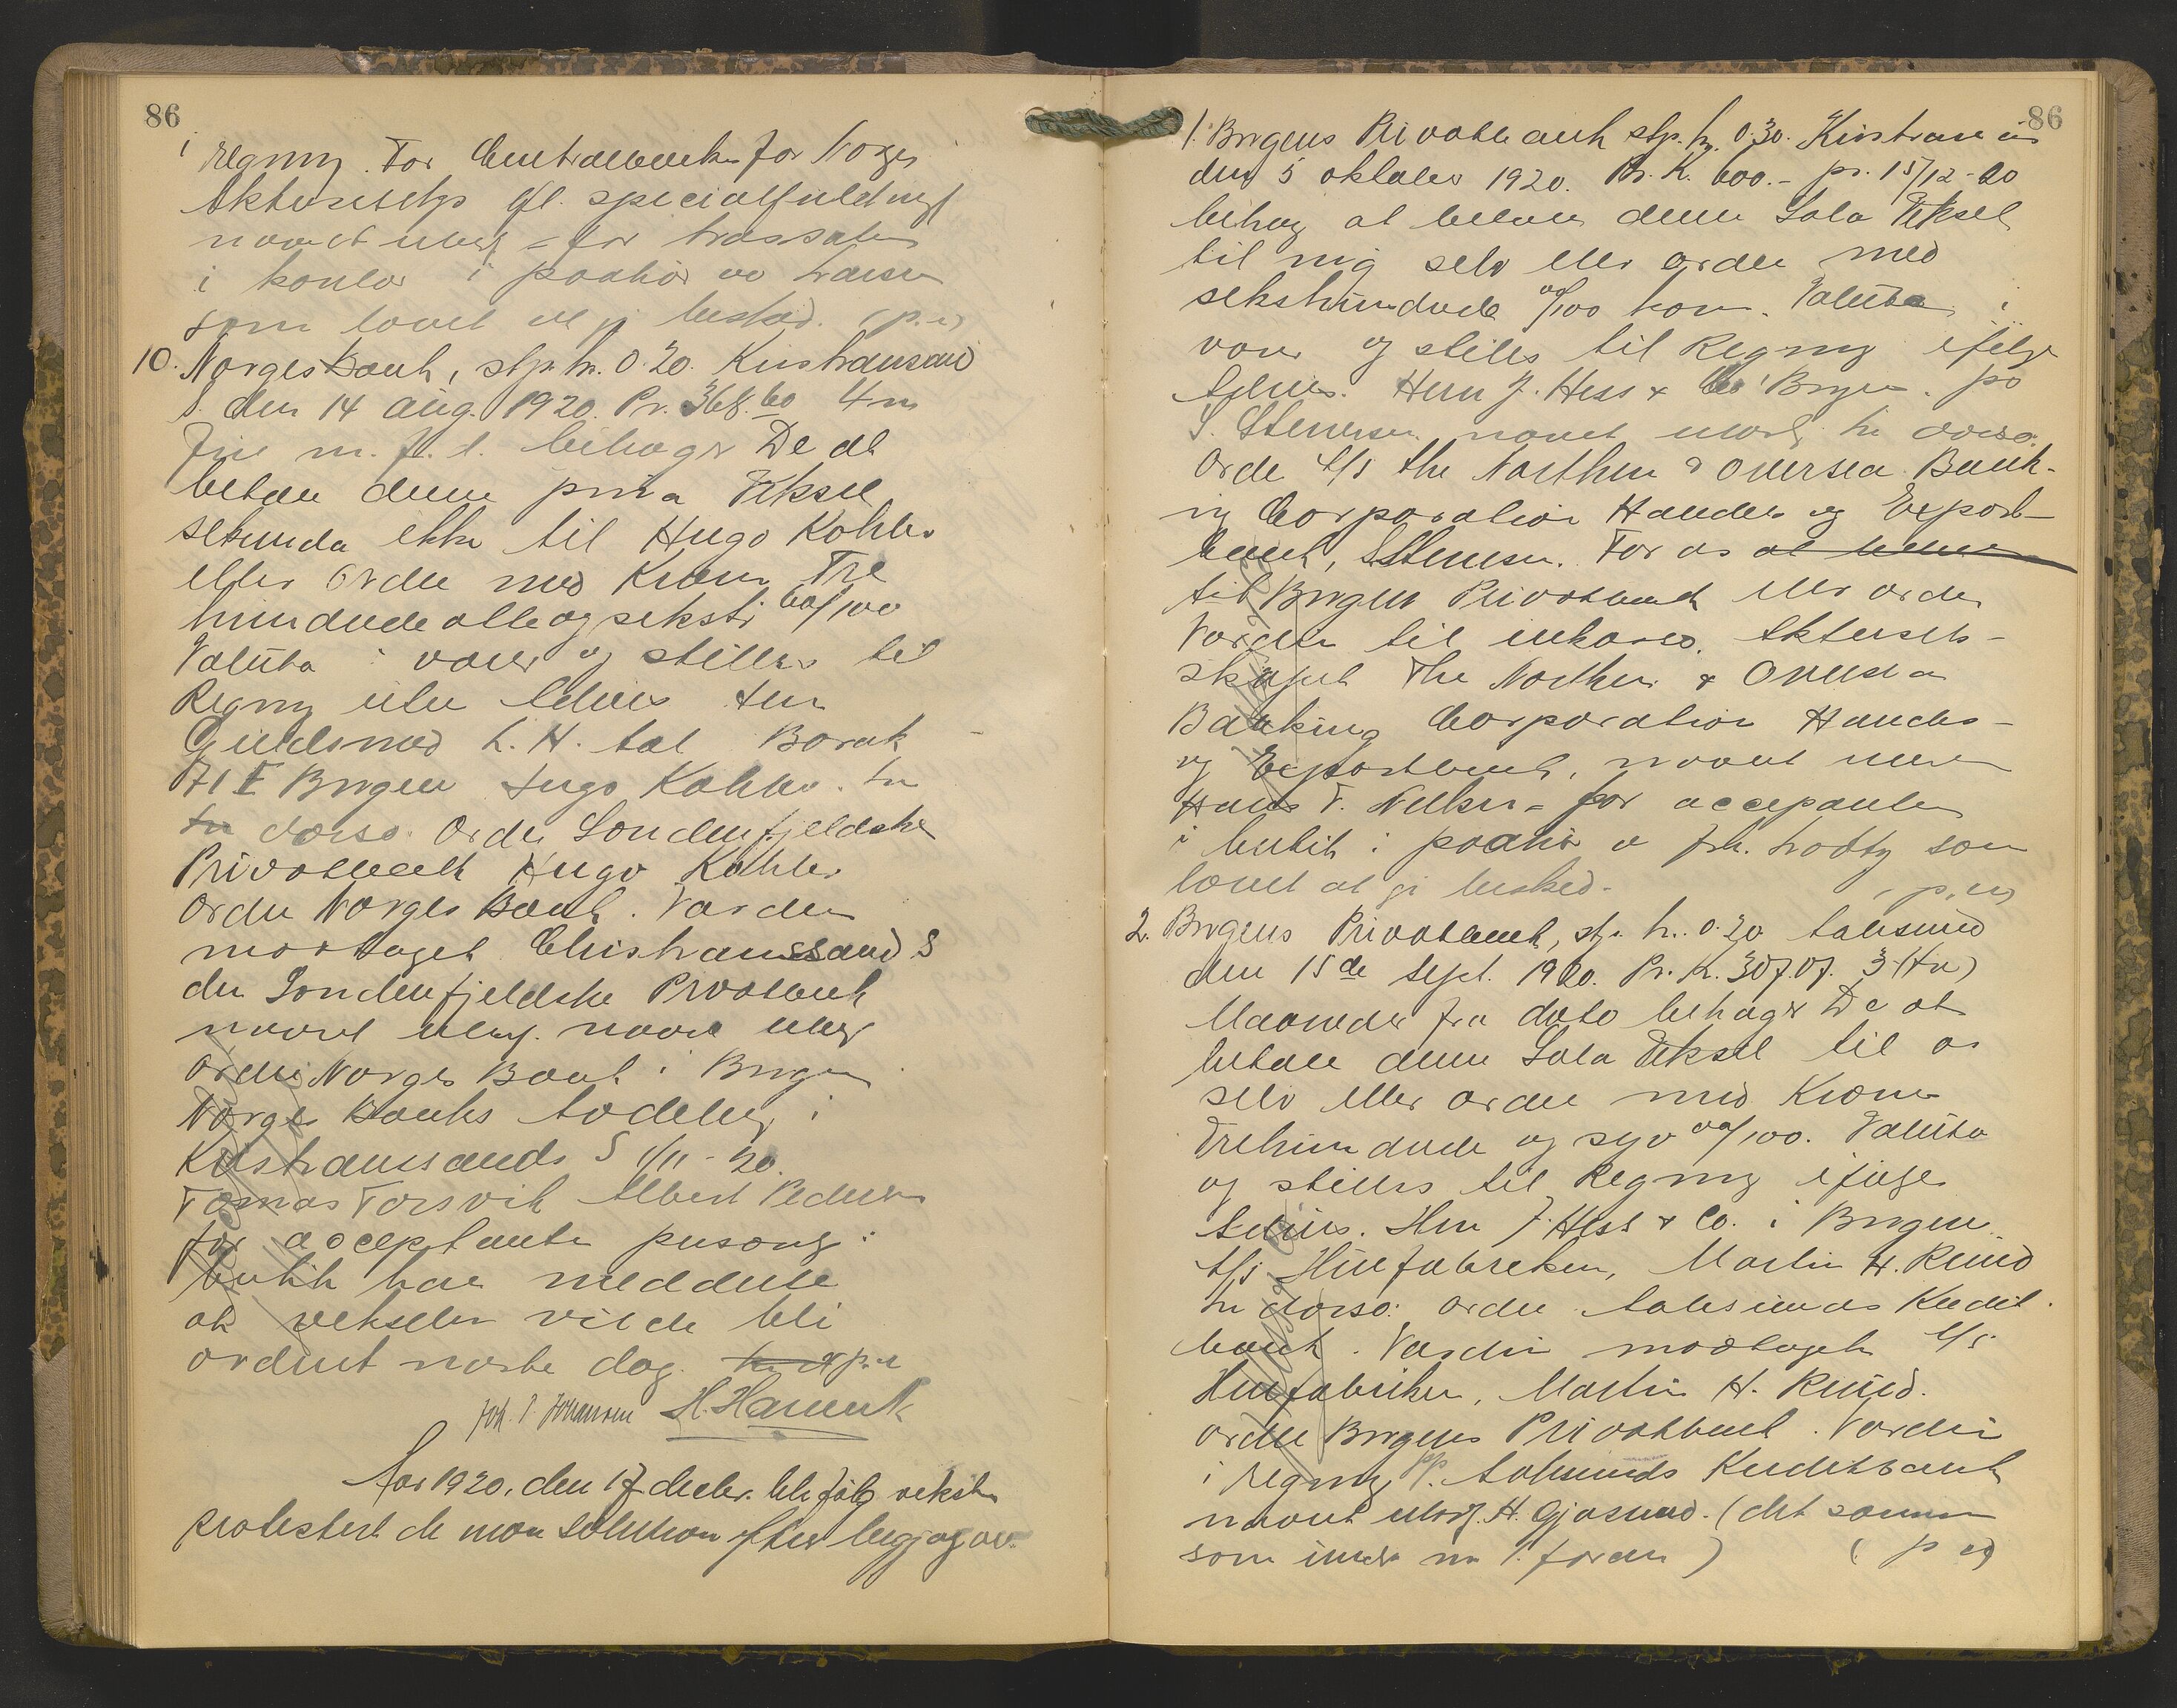 86
i Regning. For Centralbanken for Norge
Aktieselsk. ifl. specialfuldmagt
navnet ulæs. = for trassaten
i kontor i paahør av
som lovet at gi besked. (p.e)
10. Norges Bank, stp. kr. 0.20. Kristianssand
S. den 14 aug. 1920. Pr. 368.60 4 m
Fire m. f. d. behager De at
betale denne prima Veksel,
sekunda ikke til Hugo Kohler
eller Ordre med Kroner Tre
hundrede otte og seksti 60/100
Valuta i varer og stilles til
Regning uten Advis Herr
Guldsmed L. H.
Bergen Hugo Kohler. In
In dorso. Ordre Søndenfjeldske
Privatbank Hugo Kohler
Ordre Norges Bank. Værdien
mottaget Christianssand S
den Søndenfjeldske Privatbank
navnet ulæs. navnet ulæs
Ordre Norges Bank i Bergen
Norges Banks Avdeling i
Kristianssands S 1/11-20.
Tomas Torsvik Albert Pedersen
for acceptanten personlig i
butik han meddelte
at vekselen vilde bli
ordnet næste dag. p.e
Joh. P. Johannesen H.
Aar 1920, den 17 decbr. ble følg veksler
protestert de non solution efter begjæring av
86
1. Bergens Privatbank stp. kr. 0.30. Kristiania
den 5 oktober 1920. Pr. K. 600.- pr. 15/12-20
behag at betale denne Sola Veksel
til mig selv eller ordre med
sekshundrede 00/100 kron. Valuta i
varer og stilles til Regning ifølge
Advis. Herr J. Hess & Co Bergen. pr
S. Stenersen navnet ulæsl. In dorso.
Ordre A/S the Northern & Oversea Bank-
ing Corporation Handels og Export-
bank, S Stenersen. For os at betale
til Bergens Privatbank eller ordre
Værdien til inkasso. Aktiesels-
skapet The Northern & Oversea
Banking Corporation Handels-
og Exportbank, navnet ulæs
Hans T. Nielsen = for acceptanten
i butik i paahør av frk. som
lovet at gi besked. (p.e)
2. Bergens Privatbank, stp. kr. 0.20 Aalesund
den 15de Sept. 1920. Pr. K. 307.07. 3 (tre)
Maaneder fra dato behager De at
betale denne Sola Veksel til os
selv eller ordre med Kroner
Trehundrede og syv 00/100. Valuta
og stilles til Regning ifølge
Advis. Herr J. Hess & Co. i Bergen
A/S Huefabriken, Martin H. Ruud
In dorso: ordre Aalesunds Kredit
bank. Værdien modtaget A/S
Huefabriken, Martin H. Ruud.
ordre Bergens Privatbank. Værdien
i regning pp. Aalesunds Kreditbank
navnet ulæsl. H. Gjøsund. (det samme
som under no 1. foran) (p e)